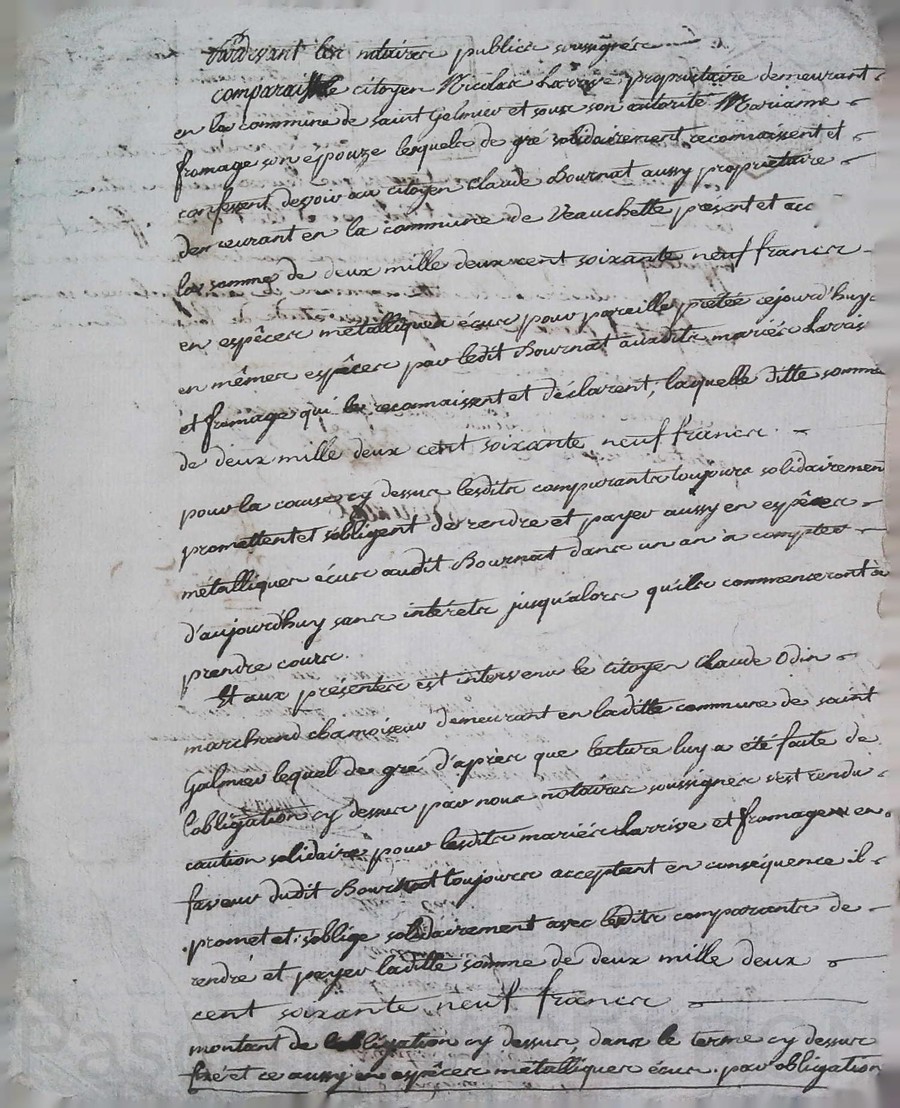 Pardevant les notaires publics soussignés
comparaiss le citoyen Nicolas Larrive proprietaire demeurant
en la commune de saint Galmier et sous son autorité Marianne
fromage son epouze lesquels de gré solidairement reconnaissent et
confessent devoir au citoyen Claude Bournat aussy proprietaire
demeurant en la commune de Veauchette présent et acc
la somme de deux mille deux cent soixante neuf francs
en espêces métalliques écus pour pareille prêtée cejourd'huy
en mêmes espêces par ledit Bournat auxdits mariés Larriv
et fromage qui le reconnaissent et déclarent, laquelle ditte somme
de deux mille deux cent soixante neuf francs.
pour la cause cy dessus lesdits comparants toujours solidairemen
promettent et s'obligent de rendre et payer aussy en espêces
métalliques écus audit Bournat dans un an a compter
d'aujourd'huy sans intérêts jusqu'alors qu'ils commenceront à
prendre cours.
Et aux présentes est intervenu le citoyen Claude Odin
marchand chamoiseur demeurant en laditte commune de saint
Galmier lequel de gré d'après que lecture luy a été faite de
l'obligation cy dessus par nous notaires soussignés s'est rendu
caution solidaire pour lesdits mariés Larrive et fromage en
faveur dudit Bournat toujours acceptant en conséquence il
promet et s'oblige solidairement avec lesdits comparants de
rendre et payer laditte somme de deux mille deux
cent soixante neuf francs
montant de l'obligation cy dessus, dans le terme cy dessus
fixé et ce aussy en espêces métalliques écus. par obligation